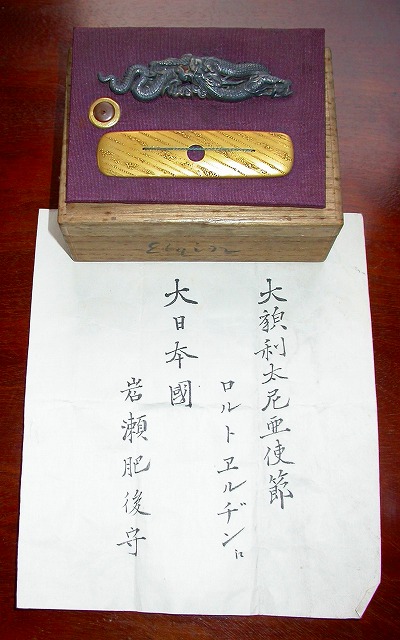 大貌利太尼亜使節
ロルトヱルヂン江
大日本國
岩瀬肥後守